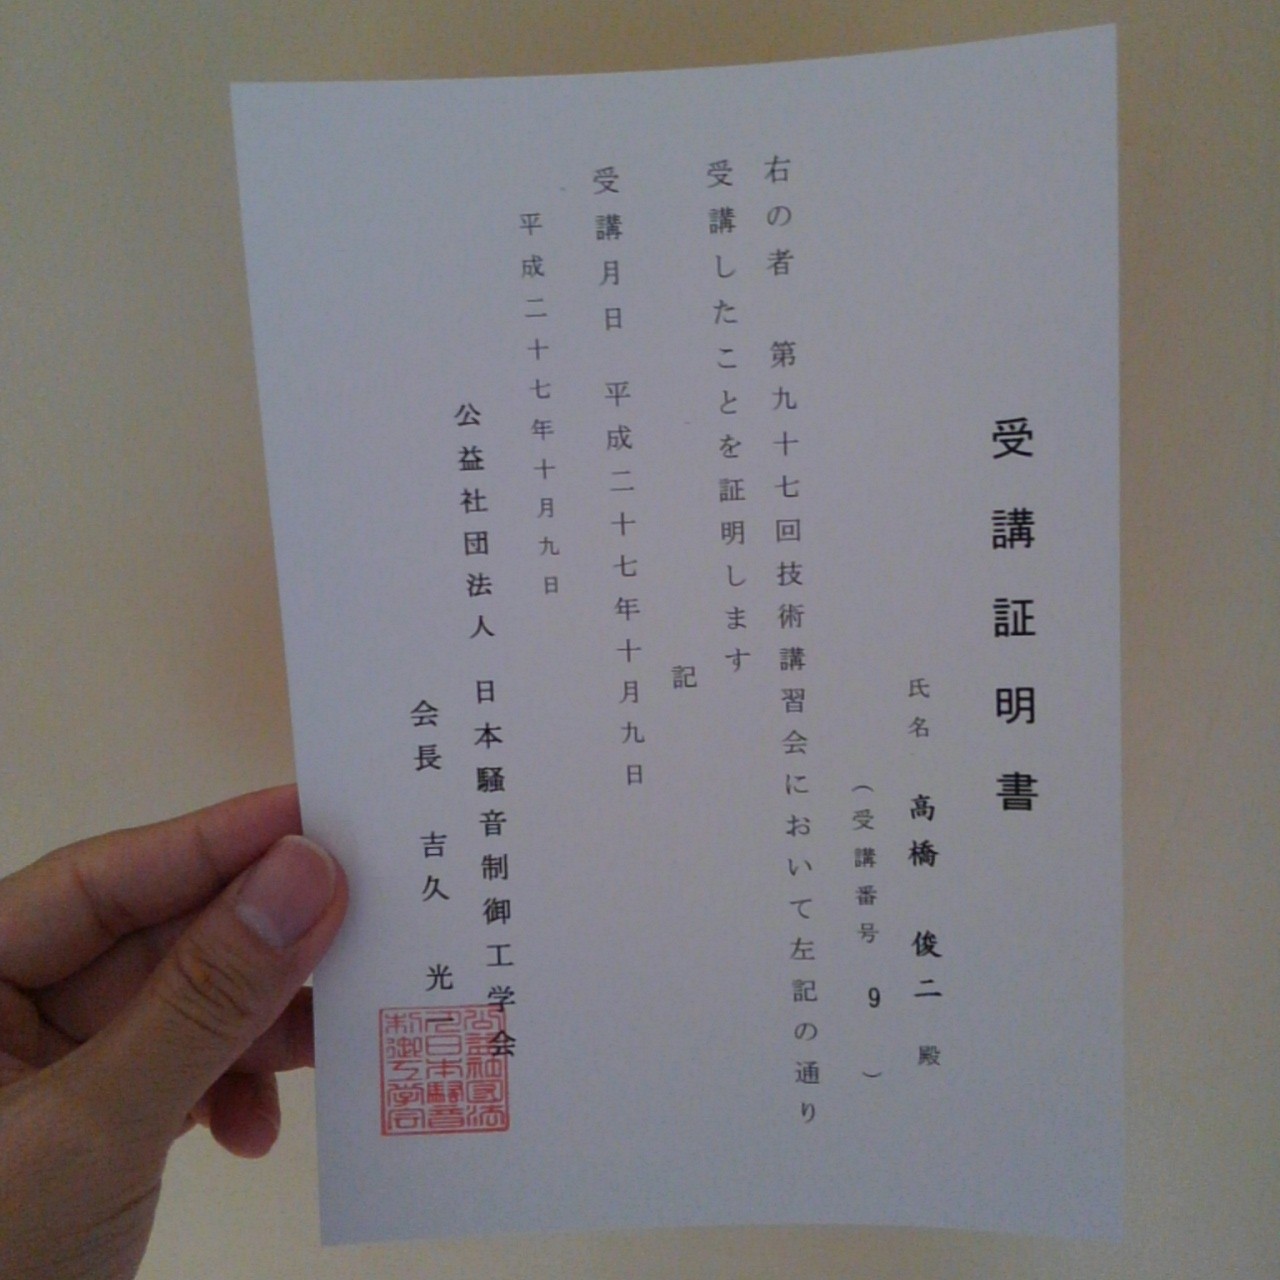 受講証明書
氏名 高橋 俊二 殿
（受講番号 9 ）
右の者 第九十七回技術講習会において左記の通り
受講したことを証明します
記
受講月日 平成二十七年十月九日
平成二十七年十月九日
公益社団法人 日本騒音制御工学会
会長 吉久 光一
公益社団法
人日本騒音
制御工学会